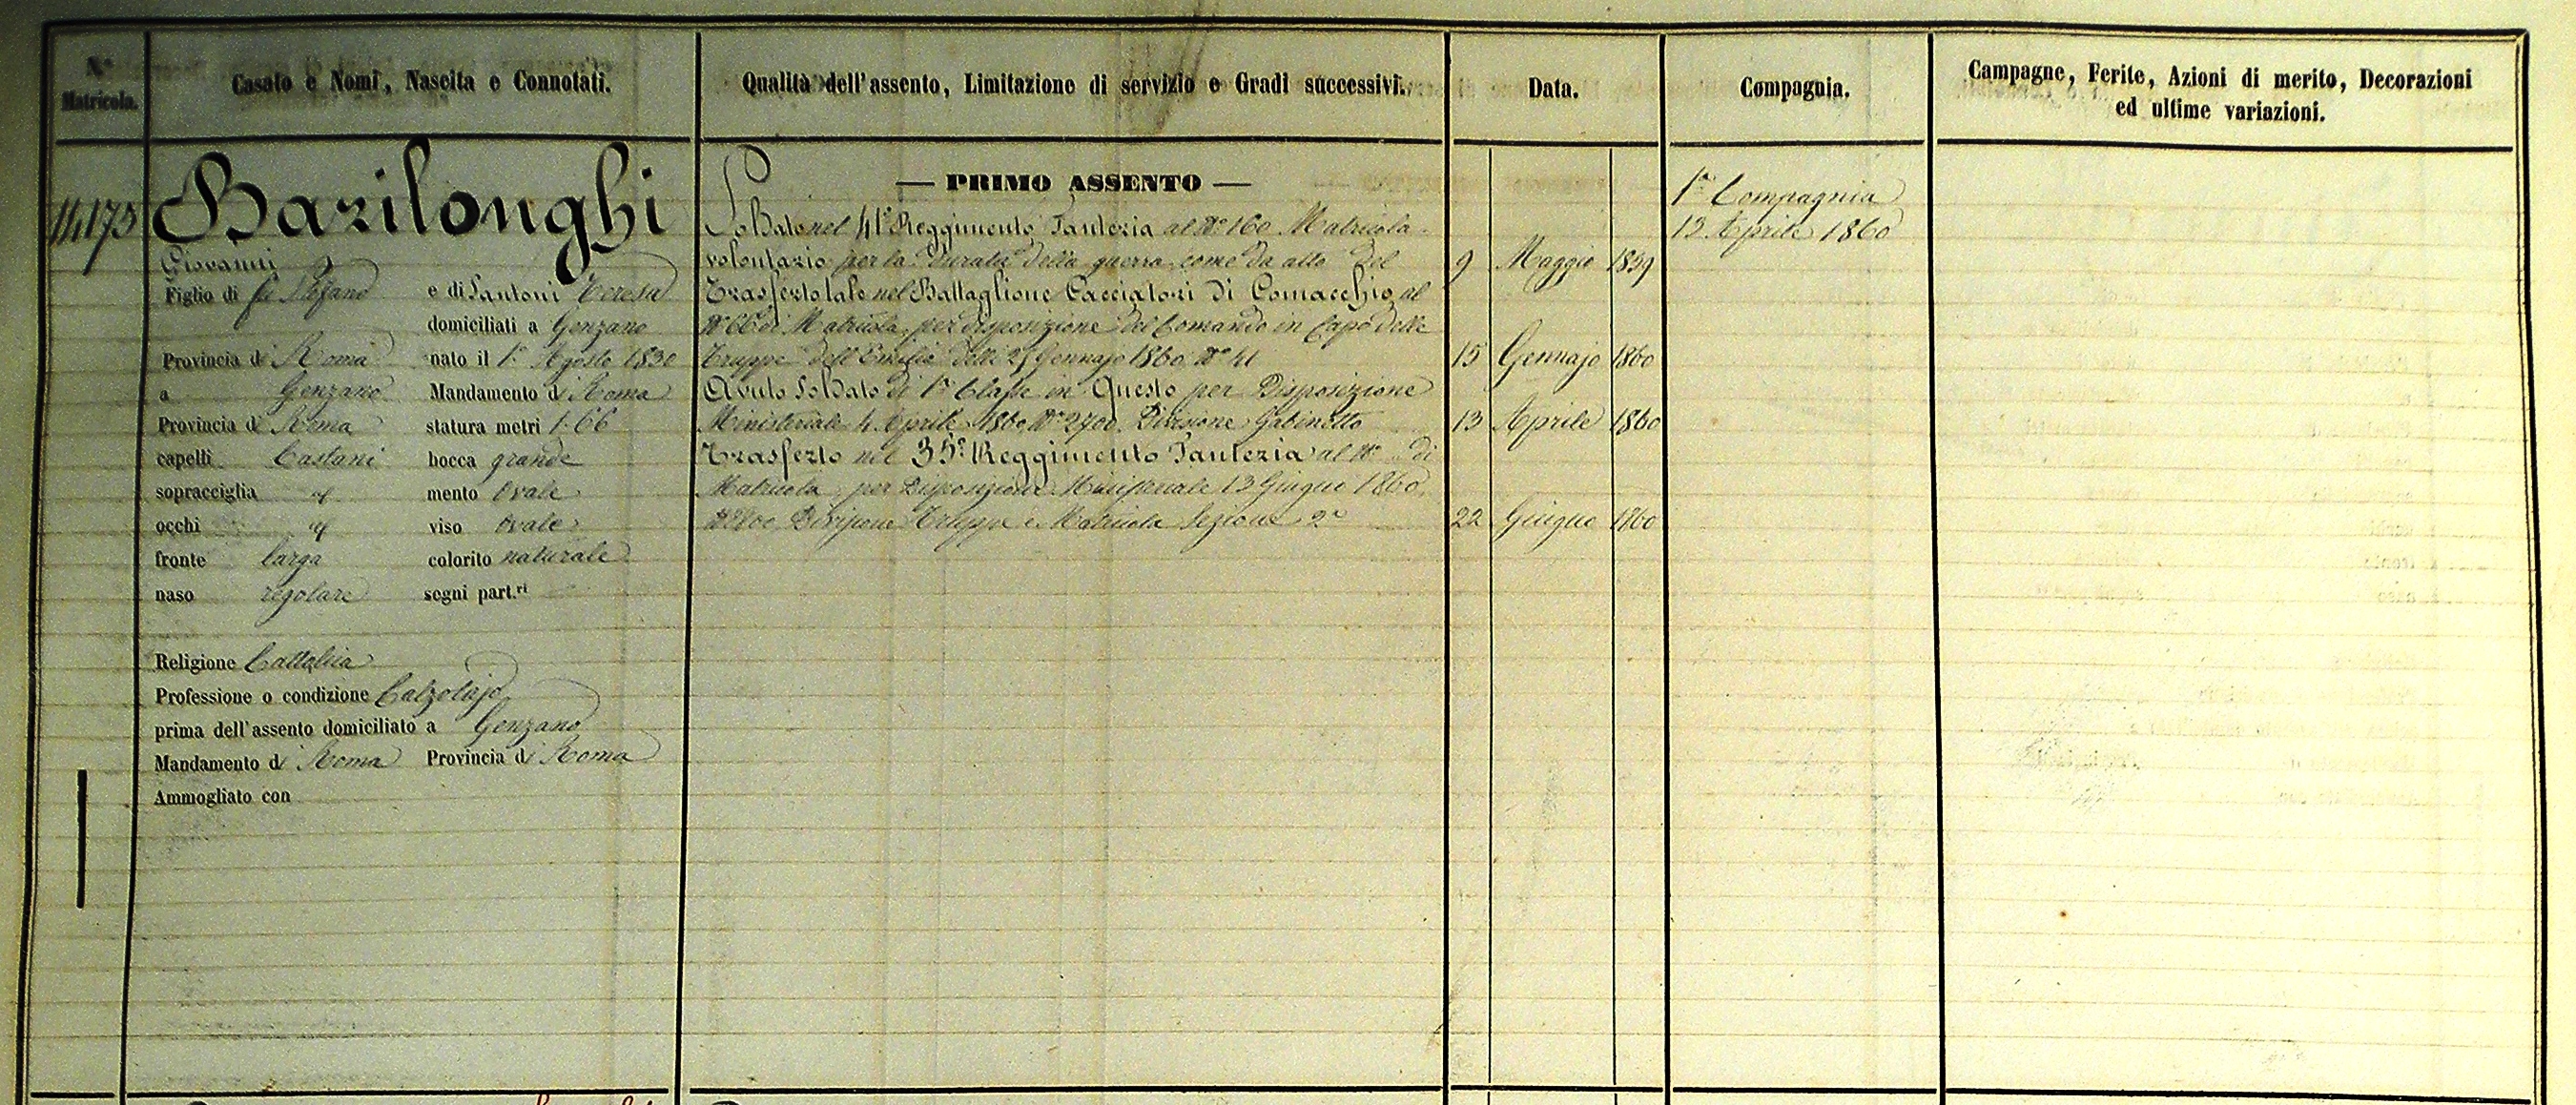 N° Matricola.
Casato e Nomi, Nascita e Connotati.
Qualità dell'assento, Limitazione di servizio e Gradi successivi.
Data.
Compagnia.
Campagne, Ferite, Azioni di merito, Decorazioni
ed ultime variazioni.
14173
Barilonghi
Giovanni
Figlio di fu Stefano e di Santoni Teresa
domiciliati a Genzano
Provincia di Roma nato il 1° Agosto 1830
a Genzano Mandamento di Roma
Provincia di Roma statura metri 1.66
capelli Castani bocca grande
sopracciglia mento Ovale
occhi viso Ovale
fronte larga colorito naturale
naso regolare segni part.ri
Religione Cattolica
Professione o condizione Calzolajo
prima dell'assento domiciliato a Genzano
Mandamento di Roma Provincia di Roma
Ammogliato con
— PRIMO ASSENTO —
Soldato nel 41° Reggimento Fanteria al N° 160 Matricola
volontario per la durata della guerra come da atto del 9 Maggio 1859
Trasferto tale nel Battaglione Cacciatori di Comacchio al
N° 66 di Matricola, per disposizione del Comando in Capo delle
Truppe dell'Emilia delli 25 Gennajo 1860 N° 41 15 Gennajo 1860
Avuto Soldato di 1a Classe in Questo per Disposizione
Ministeriale 4 Aprile 1860 N° 2700 Divisione Gabinetto 13 Aprile 1860
Trasferto nel 35° Reggimento Fanteria al N° di
Matricola per Disposizione Ministeriale 13 Giugno 1860
Divisione Truppe e Matricola Sezione 2a 22 Giugno 1860
1a Compagnia
13 Aprile 1860